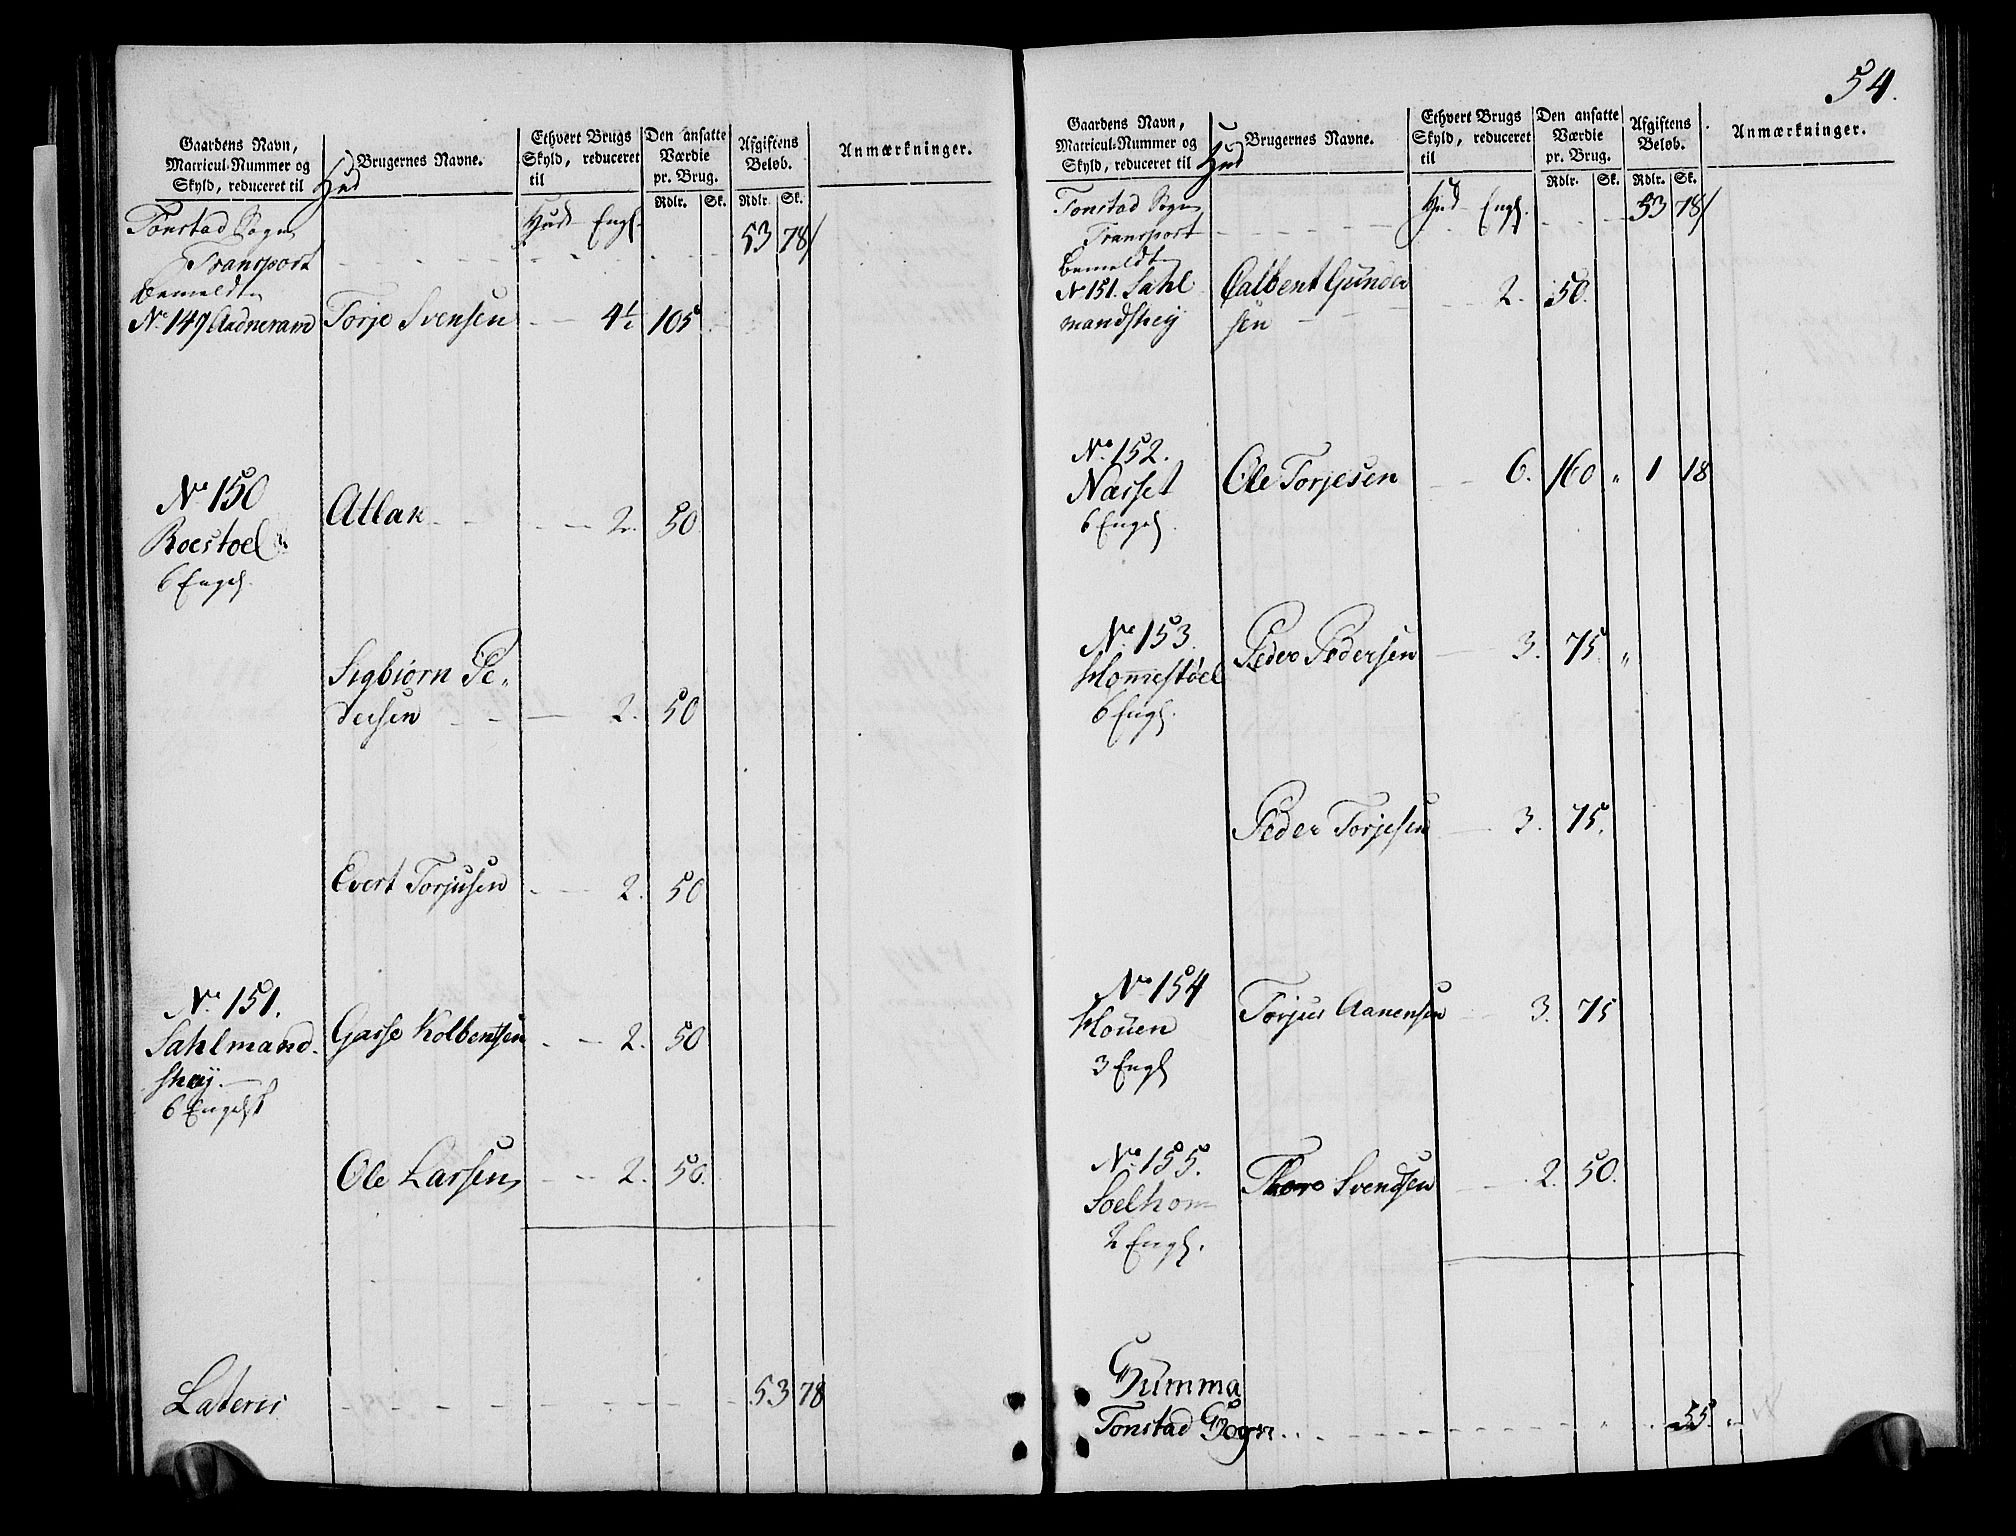 Gaardens Navn,
Matricul-Nummer og
Skyld, reduceret til Hud
Brugernes Navne.
Ethvert Brugs
Skyld, reduceret
til
Den ansatte
Værdie
pr. Brug.
Rdlr. Sk.
Afgiftens
Beløb.
Rdlr. Sk.
Anmærkninger.
Tonstad Sogn Hud Engl.
Transport 53 78
bemeldte
No 149 Aadneram Torje Svensen 4½ 105
No 150
Roestoel Atlak 2. 50
6 Engel.
Sigbiørn Pe-
dersen 2. 50
Evert Torjusen 2. 50
No. 151.
Sahlmand- Garse Kolbentsen 2. 50
shøy
6 Engels
Ole Larsen 2. 50.
Lateris 53 78
54.
Gaardens Navn,
Matricul-Nummer og
Skyld, reduceret til Hud
Brugernes Navne.
Ethvert Brugs
Skyld, reduceret
til
Den ansatte
Værdie
pr. Brug.
Rdlr. Sk.
Afgiftens
Beløb.
Rdlr. Sk.
Anmærkninger.
Tonstad Sogn Hud Engl. 53 78
Transport
bemeldte
No 151. Sahl Calbent Gunder 2. 50.
mandshøy sen
No. 152.
Nærset Ole Torjesen 6. 160 " 1 18
6 Engel.
No. 153.
Homestøel Peder Pedersen 3. 75. "
6 Engl.
Peder Torjesen 3. 75.
No 154
Houen Torjus Aanensen 3. 75
3 Engl
No. 155.
Soelhom Thore Svendsen 2. 50.
2 Engl.
Summa
Tonstad Sogn 55. "